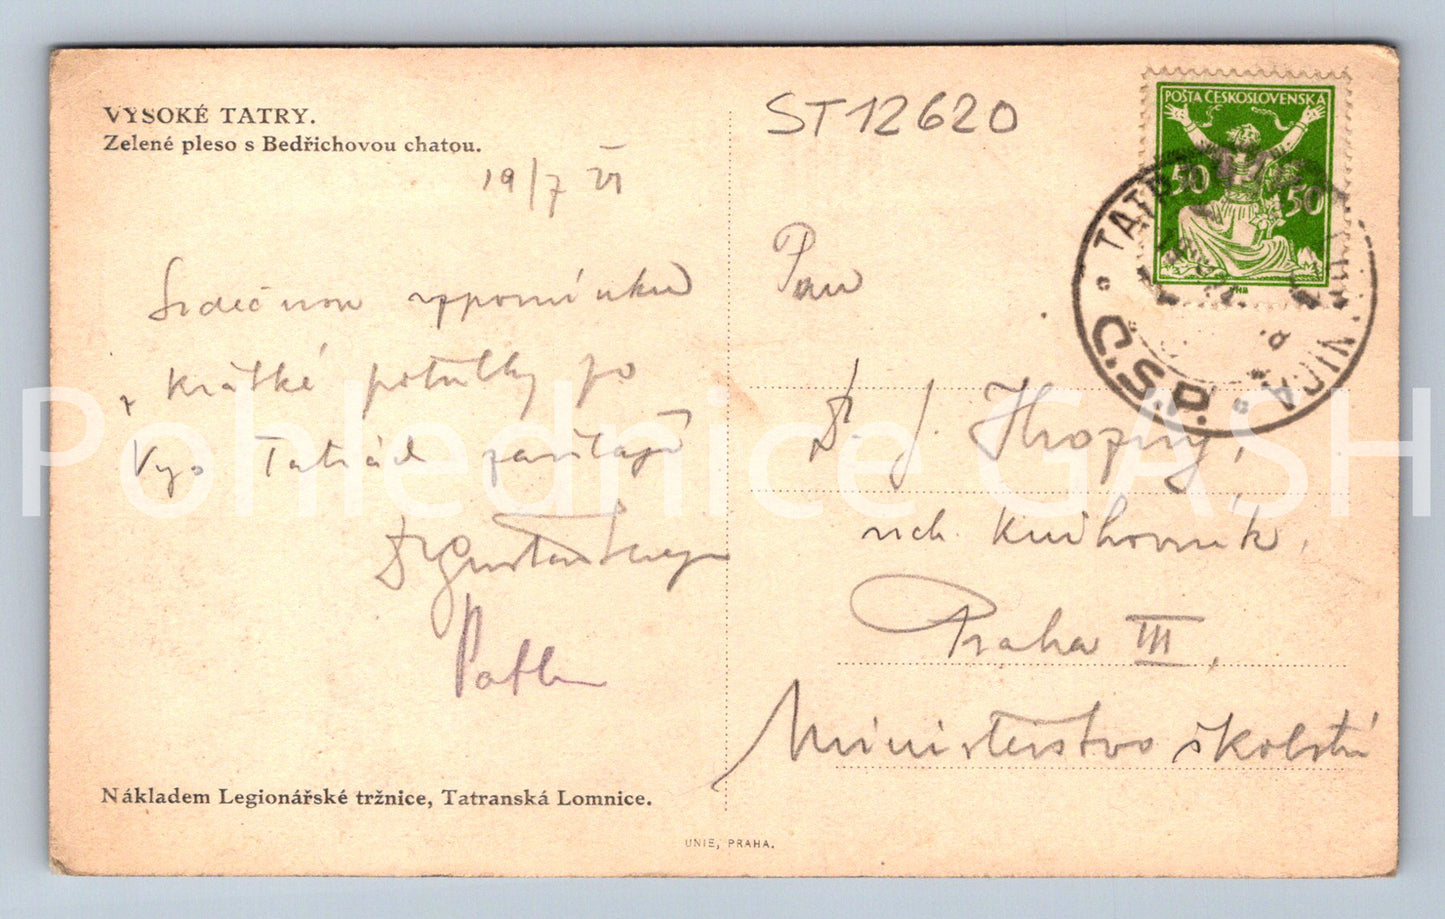 VYSOKÉ TATRY.
Zelené pleso s Bedřichovou chatou.
19/7 21
Srdečnou vzpomínku
z krátké potulky po
Vys. Tatrách zasílají
Dr
ST12620
POŠTA ČESKOSLOVENSKÁ
50 50
TATR
Č.S.P.
Pan
Dr. J. Hropný,
knihovník,
Praha III,
Ministerstvo školství
Nákladem Legionářské tržnice, Tatranská Lomnice.
UNIE, PRAHA.
Pohlednice GASH